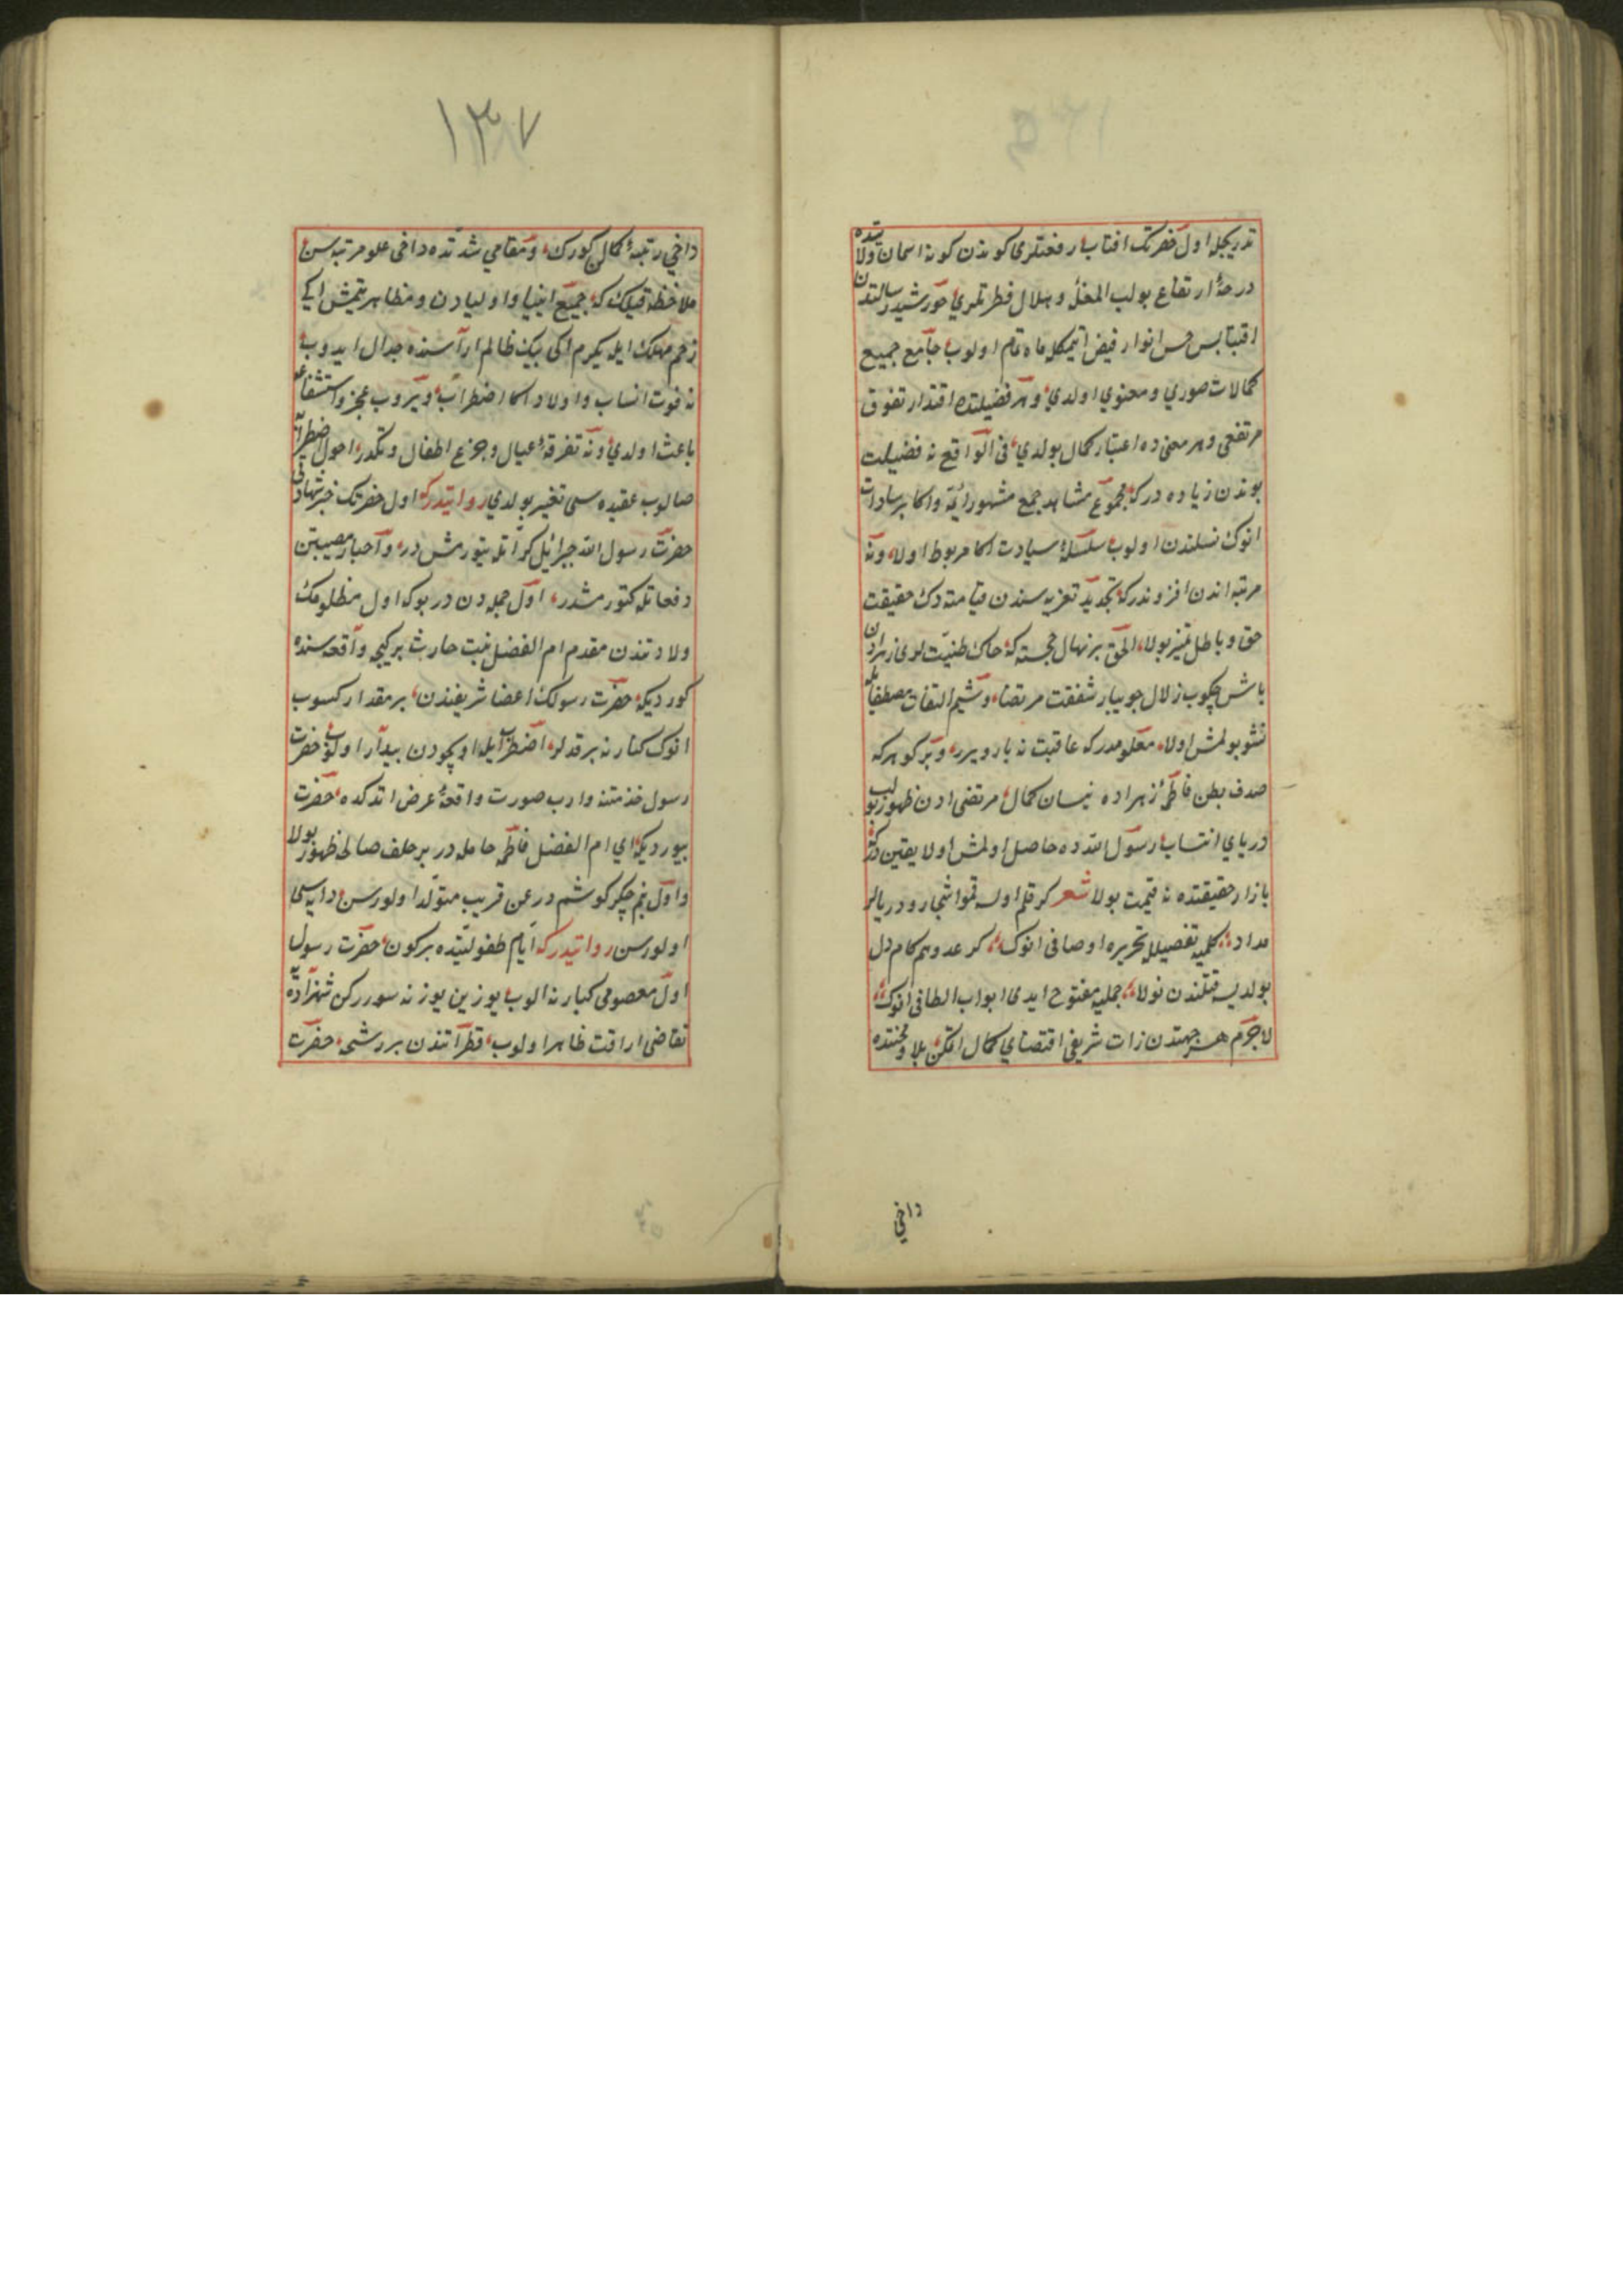 تدریجله اول حضرتک افتاب رفعتلری کوندن کونه اسمان ولایتده
درجهٔ ارتفاع بولب المغله و هلال فطرتلری خورشید رسالتدن
اقتباس انوار فیض اتمکله ماه تمام اولوب جامع جمیع
کمالات صوري و معنوي اولدي و هر فضیلتده اقتدار تفوق
مرتفعی و هر معنی ده اعتبار کمال بولدي فی الواقع نه فضیلت
بوندن زیاده درکه مجموع مشاهد جمع مشهور ائمه و اکابر سادات
انوک نسلندن اولوب سلسلهٔ سیادت اکا مربوط اولا و نه
مرتبه اندن افزوندرکه تجدید تعزیه سندن قیامته دک حقیقت
حق و باطل تمیز بولا الحق بر نهال خجسته که خاک طنیت زهرادن
باش چکوب زلال جویبار شفقت مرتضا و نسیم التفات مصطفا یله
نشو بولمش اولا معلومدرکه عاقبت نه بار ویرر و بر کوهرکه
صدف بطن فاطمهٔ زهراده نیسان کمال مرتضی ادن ظهور بولب
دریاي انتساب رسول الله ده حاصل اولمش اولا یقین درکه
بازار حقیقتده نه قیمت بولا شعر کر قلم اولسه قمو اشجار و دریالر
مداد کلمیه تفصیلله تحریره اوصافی انوک کر عدو هم کام دل
بولدیسه قتلندن نولا جملیه مفتوح ایدی ابواب الطافی انوک
لاجرم هر جهتدن ذات شریفی اقتضاي کمال اتمکن بلا و محنتده
داخي
١٣٧
داخي رتبهٔ کمالن کورک و مقامي شدتده داخی علو مرتبه سن
ملاحظه قیلک که جمیع انبیا و اولیادن و مظاهر یتمش ایکی
زخم مهلک ایله یکرم اکی بیک ظالم اراسنده جدال ایدوب
نه فوت انساب و اولاد اکا اضطراب ویروب عجز و استشفاعه
باعث اولدي و نه تفرقهٔ عیال و جزع اطفال و تکدر احوال اضطرابه
صالوب عقیده سی تغییر بولدي روایتدرکه اول حضرتک خبر شهادتنی
حضرت رسول الله جبرائیل کراتله یتورمش در و اخبار مصیبتن
دفعاتله کتورمشدر اول جمله دن در بوکه اول مظلومک
ولادتندن مقدم ام الفضل بنت حارث بر کیجه واقعه سنده
کوردیکه حضرت رسولک اعضا شریفندن بر مقدار کسوب
انوک کنارنه برقدلر اضطراب ایله اویخودن بیدار اولوب حضرت
رسول خذمتنه وارب صورت واقعهٔ عرض اتدکده حضرت
بیوردیکه اي ام الفضل فاطمه حامله در بر خلف صالح ظهور بولا
و اول بنم جکر کوشم در عن قریب متولد اولور سن دایه سی
اولورسن روایتدرکه ایام طفولیتده بر کون حضرت رسول
اول معصومی کنارنه الوب یوزین یوزنه سوررکن شهزاده
تقاضی اراقت ظاهر اولوب قطراتندن بر رشحه حضرت